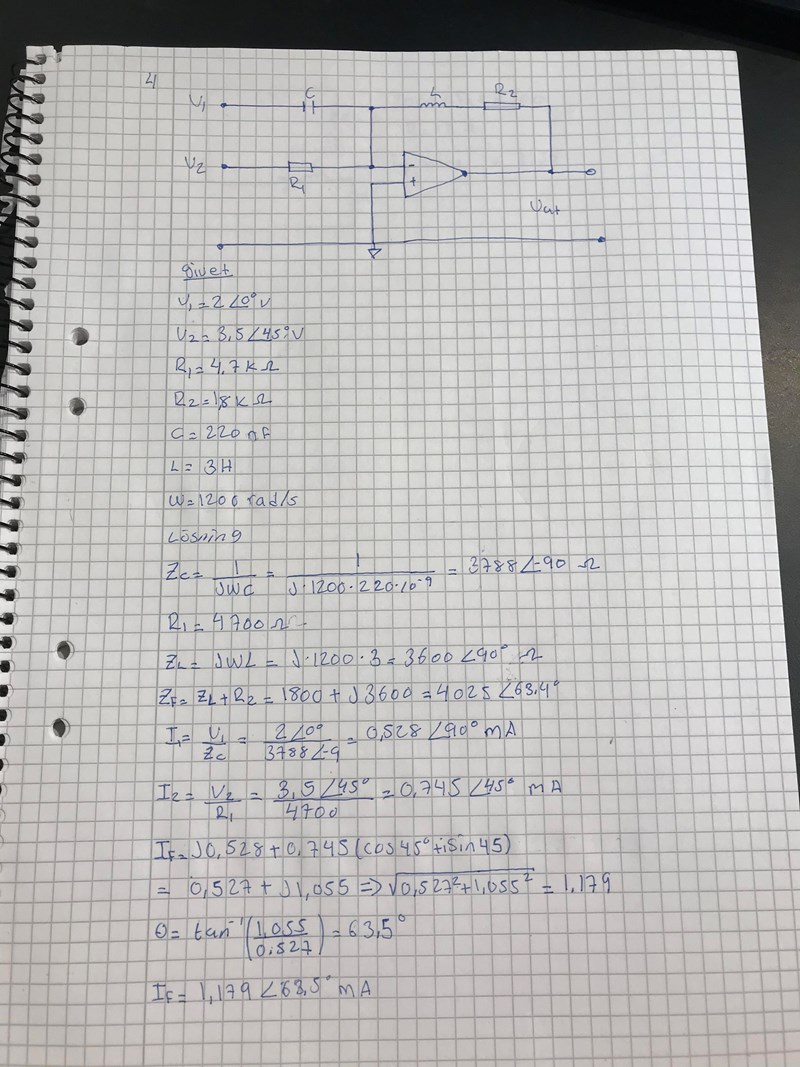 4
V₁ C L R₂
V₂ R₁ - +
Uut
givet
V₁ = 2∠0° V
V₂ = 3,5∠45° V
R₁ = 4,7 k Ω
R₂ = 1,8 k Ω
C = 220 nF
L = 3H
W = 1200 rad/s
Lösning
Zc = 1/JWC = 1/(J·1200·220·10⁻⁹) = 3788∠-90 Ω
R₁ = 4700 Ω
ZL = JWL = J·1200·3 = 3600∠90° Ω
ZF = ZL + R₂ = 1800 + J3600 = 4025∠63,4°
I₁ = V₁/Zc = 2∠0°/3788∠-9 = 0,528∠90° mA
I₂ = V₂/R₁ = 3,5∠45°/4700 = 0,745∠45° mA
IF = J0,528 + 0,745(cos45° + isin45)
= 0,527 + J1,055 => √(0,527² + 1,055²) = 1,179
θ = tan⁻¹(1,055/0,527) = 63,5°
IF = 1,179∠63,5° mA